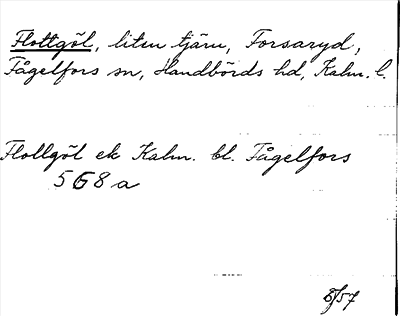 Flottgöl, liten tjärn, Forsaryd,
Fågelfors sn, Handbörds hd, Kalm. l.
Flollgöl ek Kalm. bl. Fågelfors
5G8a
/57